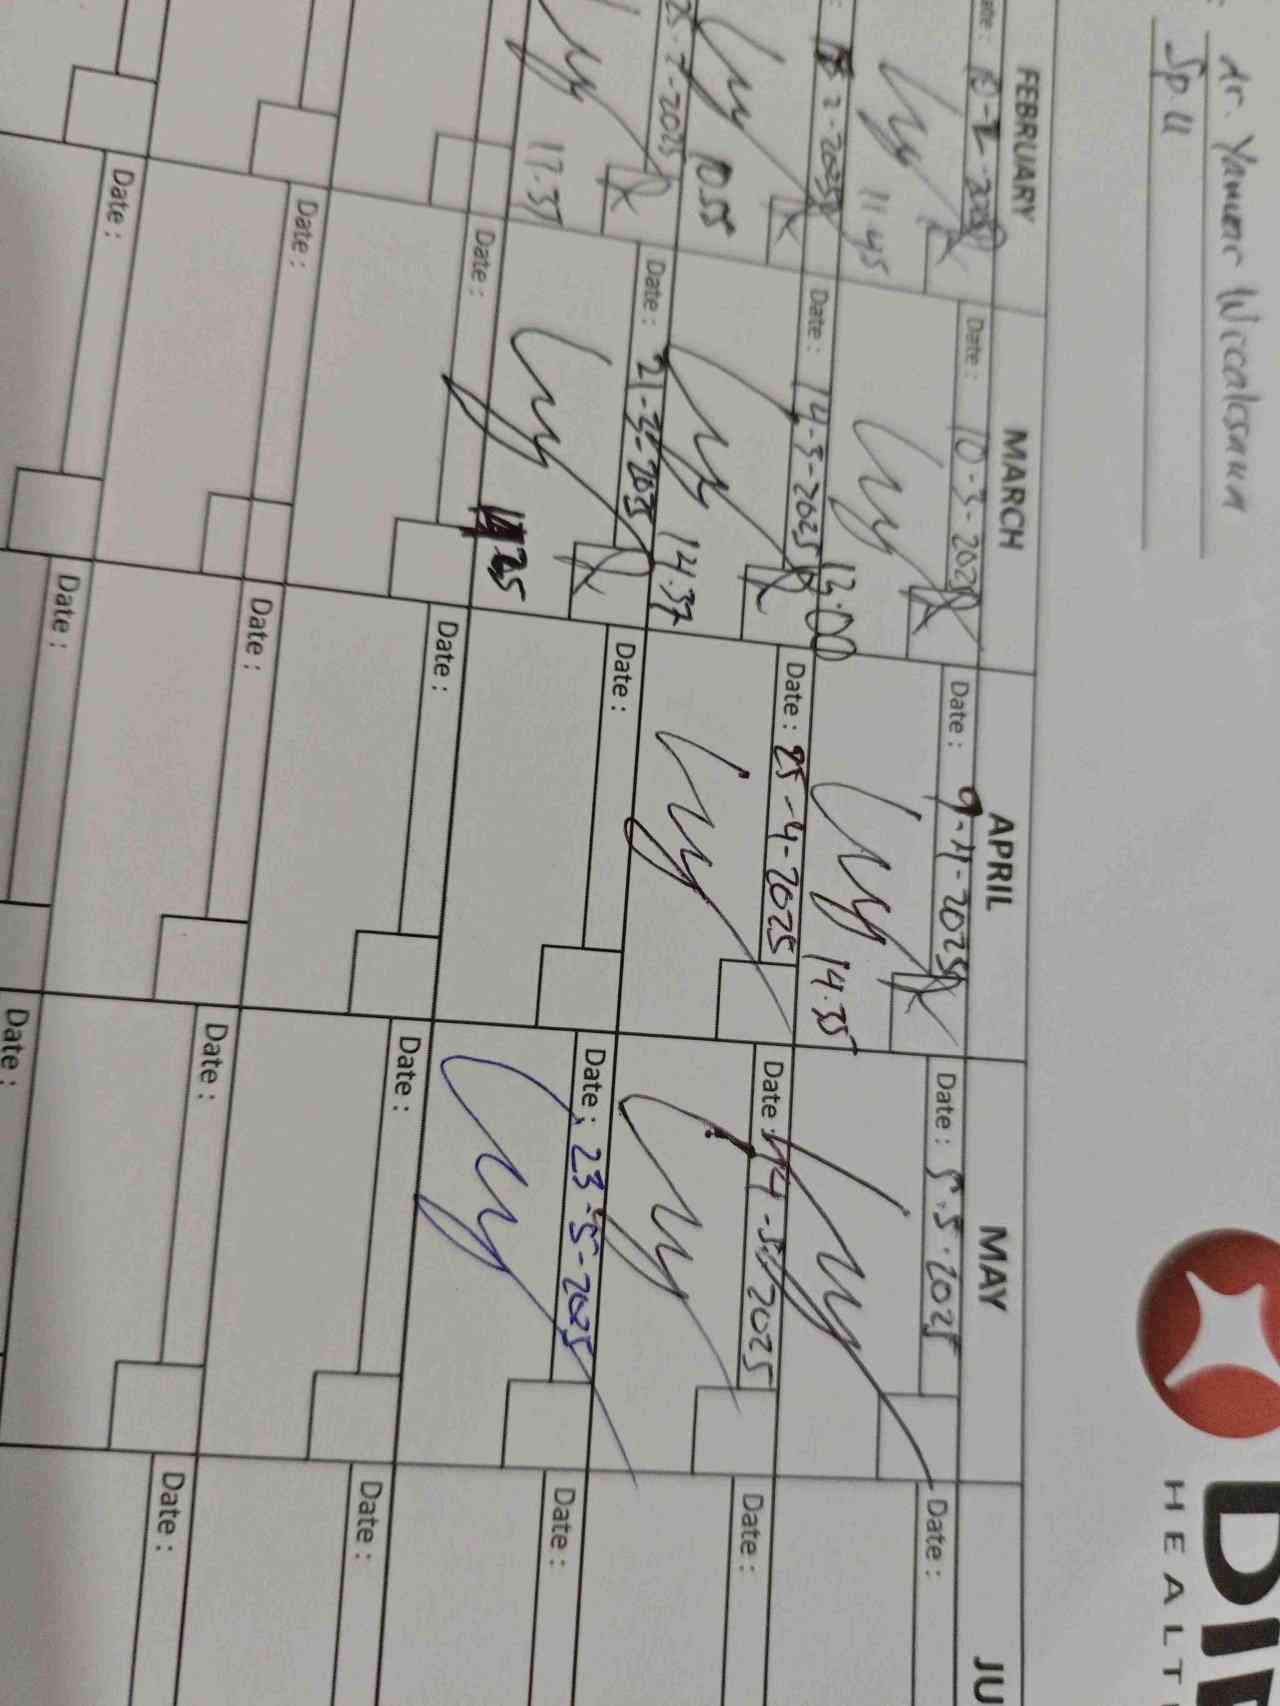 dr. Yanuar Wicaksana
Sp. U
DI
HEALT
FEBRUARY
MARCH
APRIL
MAY
JU
Date : 10-2-2025
Date : 10-3-2025
Date : 9-4-2025
Date : 5.5.2025
Date :
11.45
13.00
14.35
2-2025
Date : 14-3-2025
Date : 25-4-2025
Date : 14-5-2025
Date :
10.55
14.37
25-2-2025
Date : 21-3-2025
Date :
Date : 23-5-2025
Date :
17.35
Date :
Date :
Date :
Date :
Date :
Date :
Date :
Date :
Date :
Date :
Date :